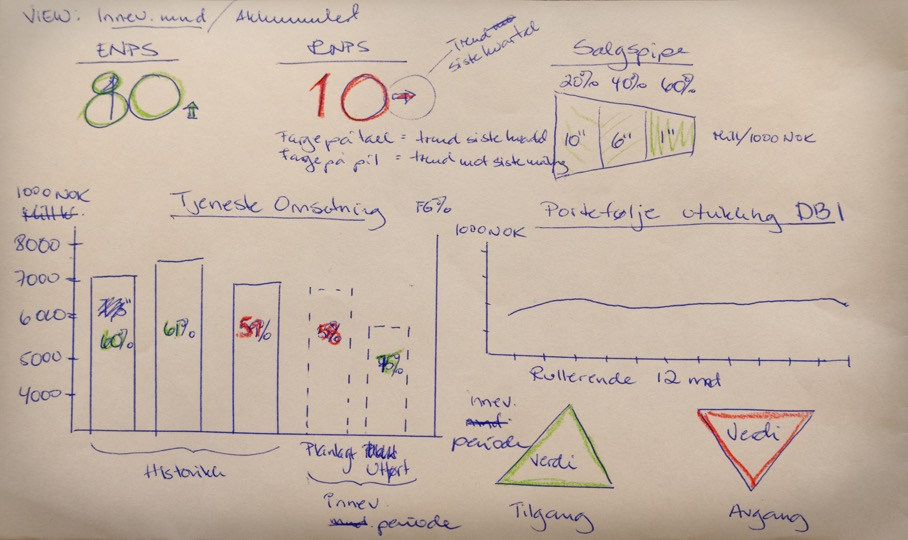 VIEW: Innev. mnd / Akkumulert
ENPS
80
PNPS
10
Trend
siste kvartal
Farge på tall = trend siste kvartal
Farge på pil = trend mot siste måling
Salgspipe
20% 40% 60%
10" 6" 1"
Mill/1000 NOK
1000 NOK
Tjeneste Omsetning
FG%
8000
7000
6000
5000
4000
60%
61%
59%
75%
Historikk
Planlagt
Utført
innev.
mnd. periode
Portefølje utvikling DB1
1000 NOK
Rullerende 12 md
innev.
mnd.
periode
Verdi
Tilgang
Verdi
Avgang